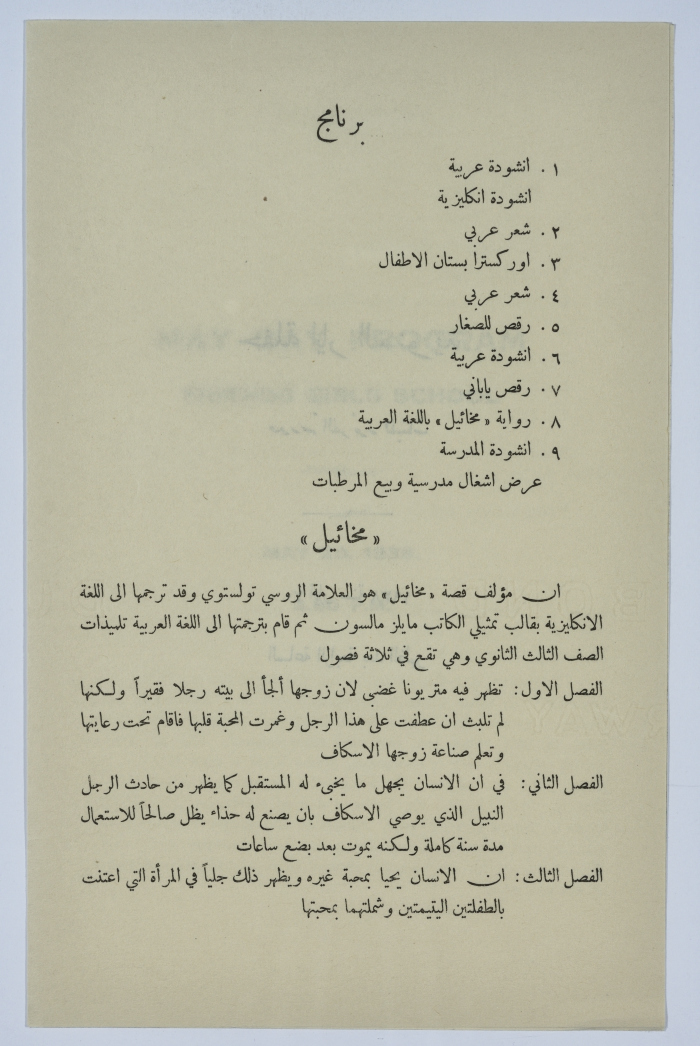 برنامج
١ . انشودة عربية
انشودة انكليزية
٢ . شعر عربي
٣ . اوركسترا بستان الاطفال
٤ . شعر عربي
٥ . رقص للصغار
٦ . انشودة عربية
٧ . رقص ياباني
٨ . رواية «مخائيل» باللغة العربية
٩ . انشودة المدرسة
عرض اشغال مدرسية وبيع المرطبات
«مخائيل»
ان مؤلف قصة «مخائيل» هو العلامة الروسي تولستوي وقد ترجمها الى اللغة
الانكليزية بقالب تمثيلي الكاتب مايلز مالسون ثم قام بترجمتها الى اللغة العربية تلميذات
الصف الثالث الثانوي وهي تقع في ثلاثة فصول
الفصل الاول: تظهر فيه متريونا غضبى لان زوجها ألجأ الى بيته رجلا فقيراً ولكنها
لم تلبث ان عطفت على هذا الرجل وغمرت المحبة قلبها فاقام تحت رعايتها
وتعلم صناعة زوجها الاسكاف
الفصل الثاني: في ان الانسان يجهل ما يخبىء له المستقبل كما يظهر من حادث الرجل
النبيل الذي يوصي الاسكاف بان يصنع له حذاء يظل صالحاً للاستعمال
مدة سنة كاملة ولكنه يموت بعد بضع ساعات
الفصل الثالث: ان الانسان يحيا بمحبة غيره ويظهر ذلك جلياً في المرأة التي اعتنت
بالطفلتين اليتيمتين وشملتهما بمحبتها